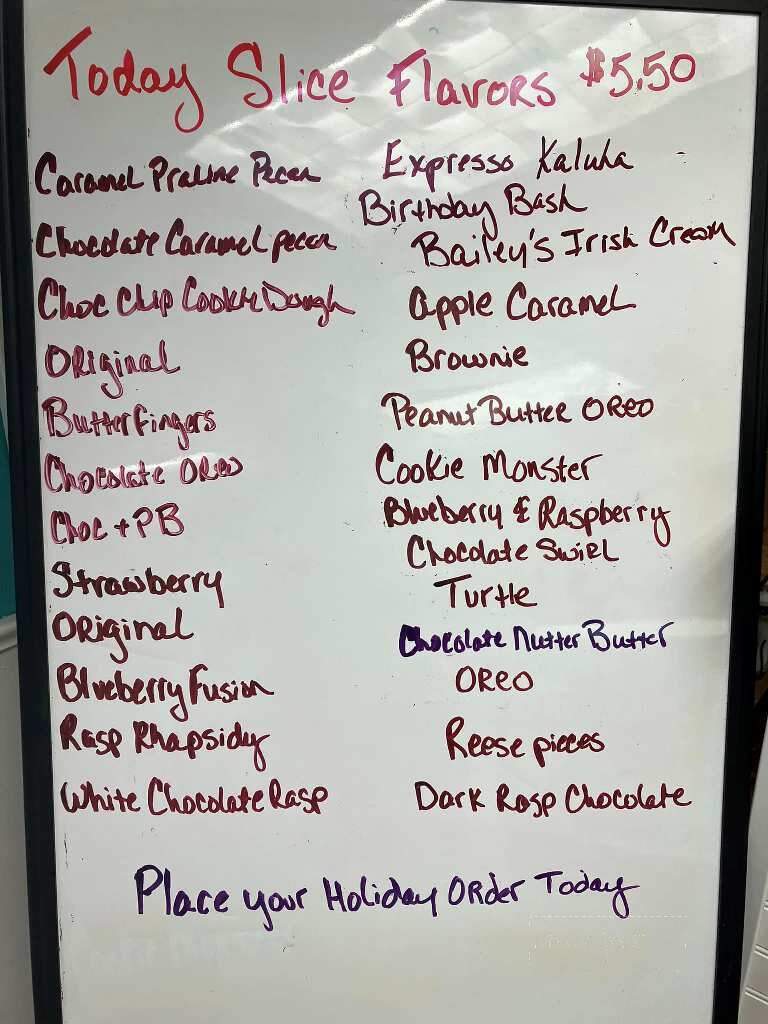 Today Slice Flavors $5.50
Caramel Praline Pecan
Chocolate Caramel pecan
Choc Chip Cookie Dough
Original
Butterfingers
Chocolate Oreo
Choc + PB
Strawberry
Original
Blueberry Fusion
Rasp Rhapsidy
White Chocolate Rasp
Expresso Kaluha
Birthday Bash
Bailey's Irish Cream
Apple Caramel
Brownie
Peanut Butter Oreo
Cookie Monster
Blueberry & Raspberry
Chocolate Swirl
Turtle
Chocolate Nutter Butter
Oreo
Reese pieces
Dark Rasp Chocolate
Place your Holiday Order Today